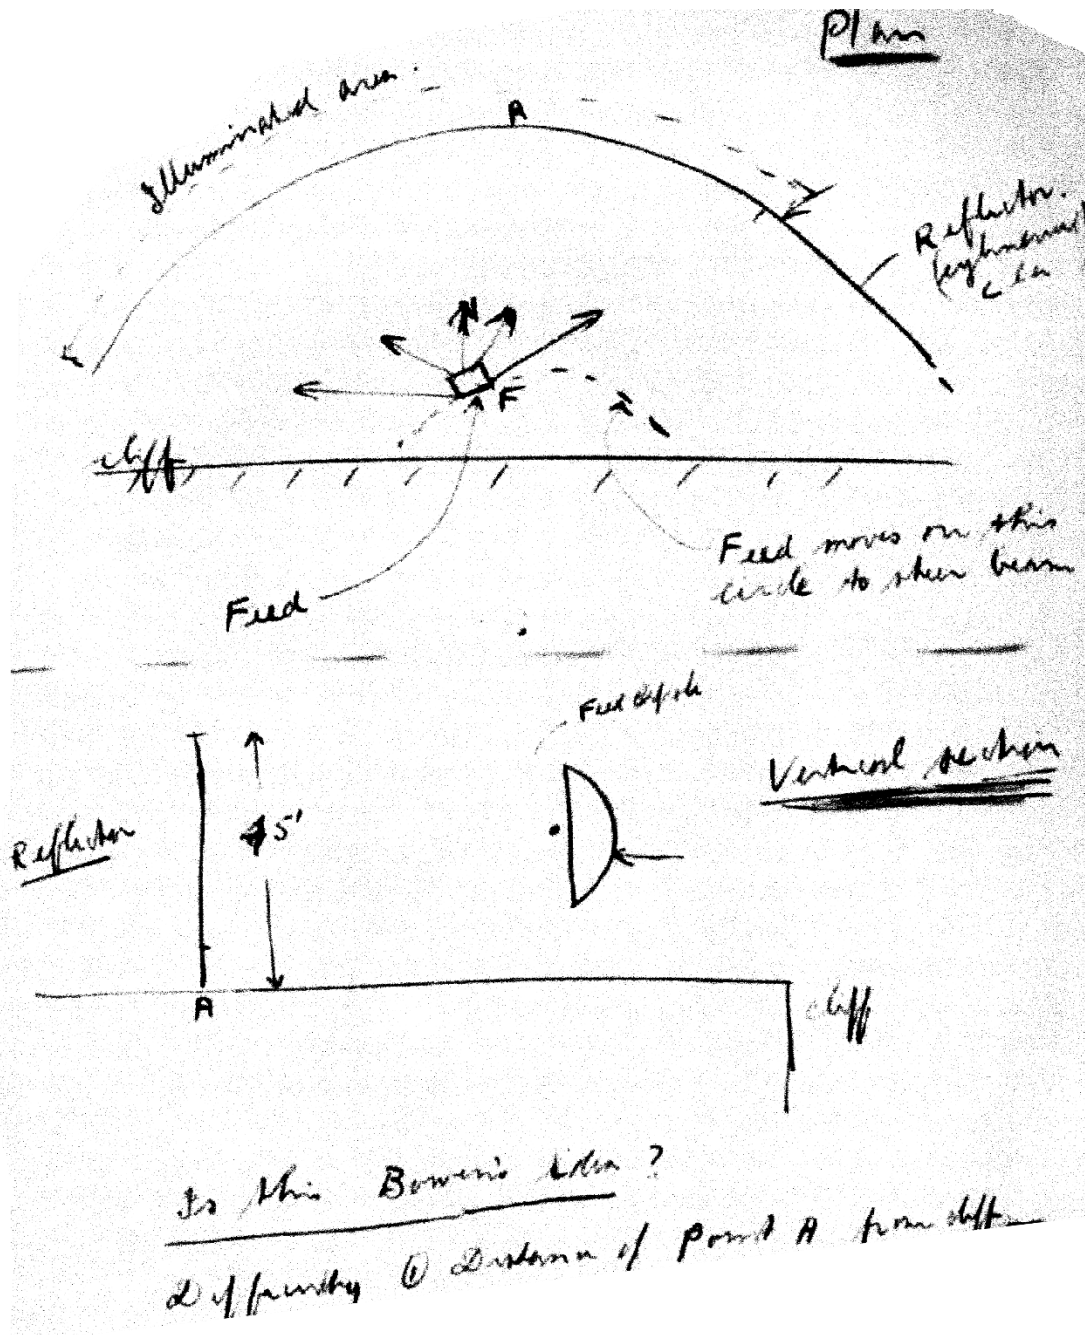 Plan
Illuminated area.
A
Reflector.
N
F
cliff
Feed moves on this
circle to steer beam
Feed
Feed
Vertical section
Reflector
5'
A
cliff
Is this Bowen's idea?
Difficulty ① Distance of Point A from cliff